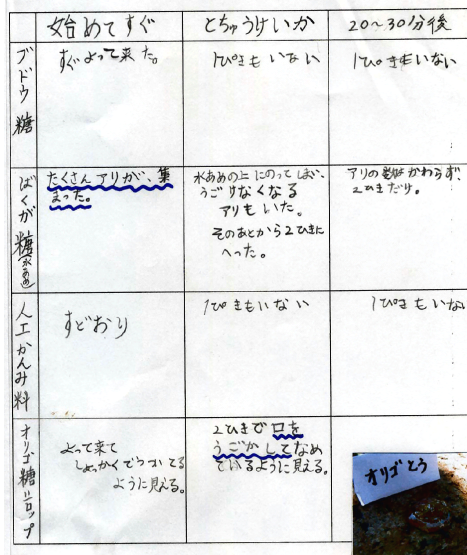 始めてすぐ
とちゅうけいか
20〜30分後
ブドウ糖
すぐよって来た。
1ぴきもいない
1ぴきもいない
ばくが糖(水あめ)
たくさんアリが、集
まった。
水あめの上にのってしまい、
うごけなくなる
アリもいた。
そのあとから2ひきに
へった。
アリの数はかわらず、
2ひきだけ。
人工かんみ料
すどおり
1ぴきもいない
1ぴきもいない
オリゴ糖シロップ
よって来て
しょっかくでつついてる
ように見える。
2ひきで口を
うごかしてなめ
ているように見える。
オリゴとう